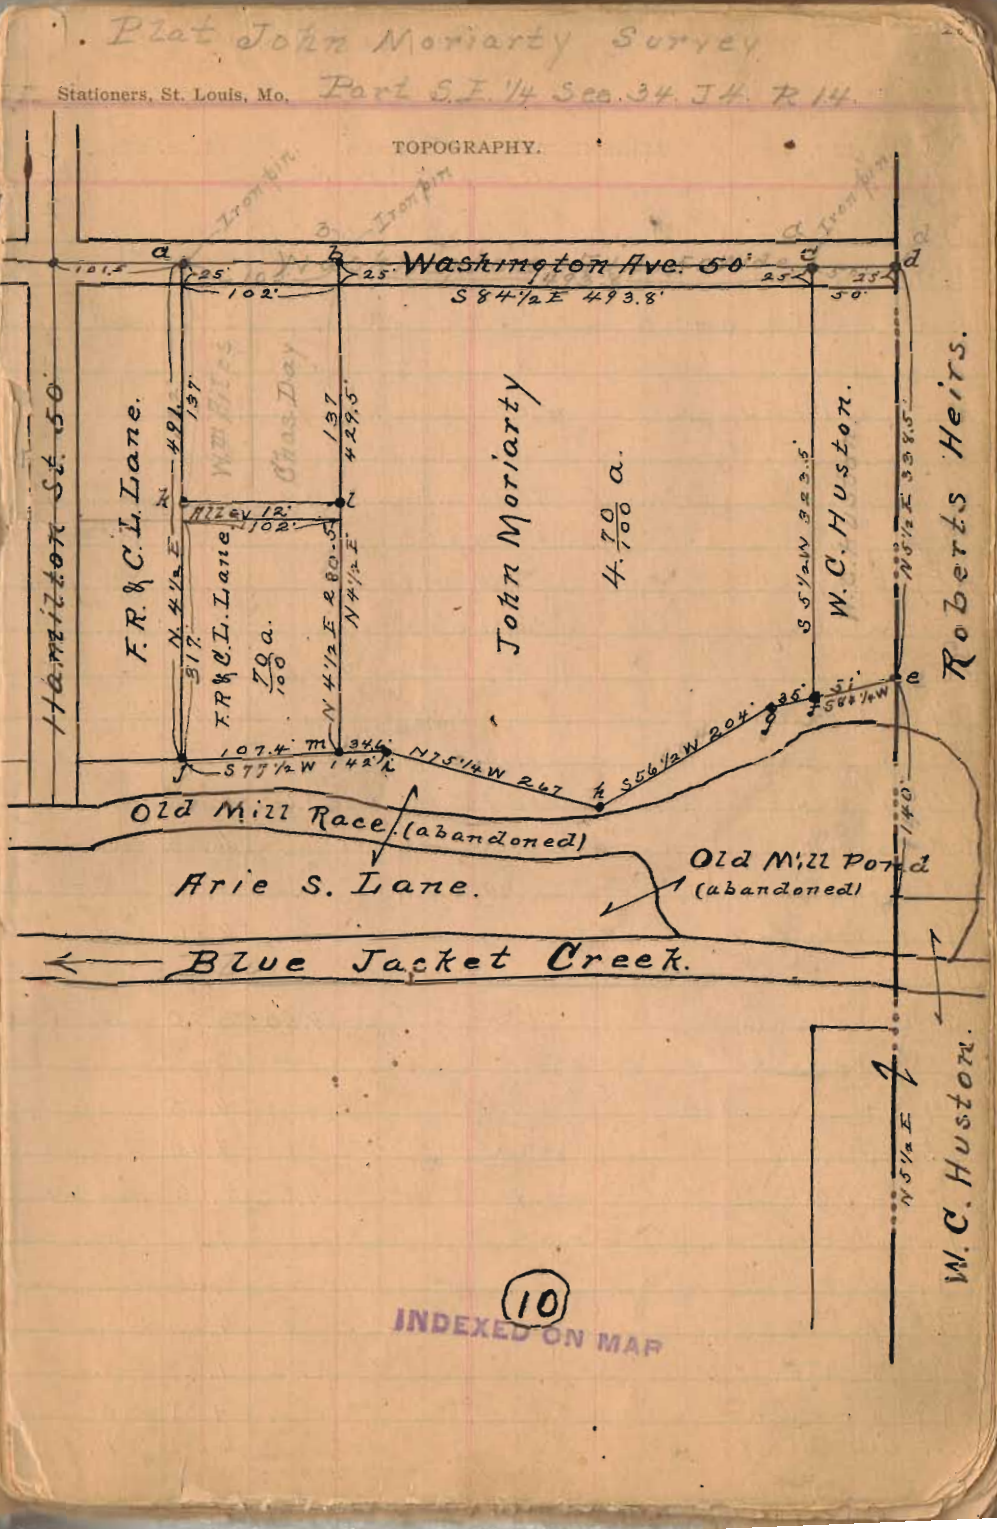 Plat John Moriarty Survey
Stationers, St. Louis, Mo.
Part S.E. 1/4 Sec. 34. T4. R 14.
TOPOGRAPHY.
Iron pin
Iron pin
Iron pin
a
b
c
d
101.5
25'
25'
Washington Ave. 50'
25'
25'
102'
S 84 1/2 E 493.8'
50'
Hamilton St. 50'
F.R. & C.L. Lane.
N. 4 1/2 E 491.
137'
317'
Chas. Day
137
429.5'
k
l
Alley 12'
102'
F.R. & C.L. Lane.
70/100 a.
N 4 1/2 E 280.5
N 4 1/2 E
John Moriarty
4. 70/100 a.
S 5 1/2 W 323.5'
W. C. Huston.
N 5 1/2 E 338.5'
Roberts Heirs.
e
51'
f
35'
g
107.4'
m
34.6'
i
S 77 1/2 W 142'
j
N 75 1/4 W 267
h
S 56 1/2 W 204'
140'
Old Mill Race. (abandoned)
Old Mill Pond
(abandoned)
Arie S. Lane.
Blue Jacket Creek.
N 5 1/2 E
W. C. Huston.
10
INDEXED ON MAP